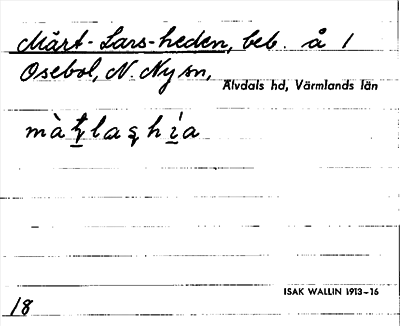 Märt-Lars-heden, beb. å 1
Osebol, N. Ny sn,
Älvdals hd, Värmlands län
ISAK WALLIN 1913-16
18